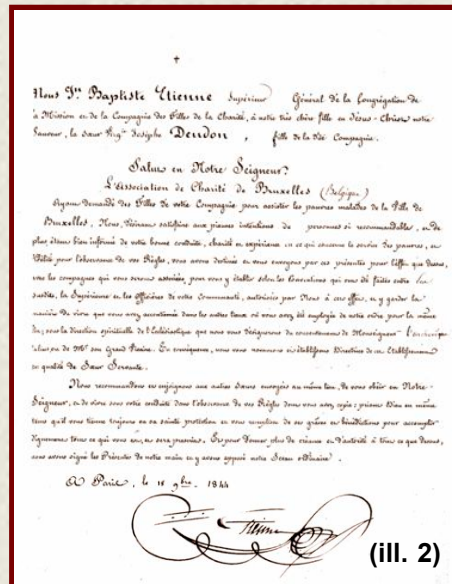 Nous Jn. Baptiste Etienne Supérieur Général de la Congrégation de
la Mission et de la Compagnie des Filles de la Charité, à notre très chère fille en Jésus-Christ notre
Sauveur, la Sœur Joséphe Dendon, fille de la dite Compagnie.
Salut en Notre Seigneur.
L'Association de Charité de Bruxelles (Belgique)
Ayant demandé des Filles de votre Compagnie pour assister les pauvres malades de la Ville de
Bruxelles, Nous, désirant satisfaire aux pieuses intentions de personnes si recommandables, et de
plus, étant bien informé de votre bonne conduite, charité et expérience en ce qui concerne le service des pauvres, et
fidélité pour l'observance de vos Règles, vous avons destinée et vous envoyons par ces présentes pour l'effet que dessus,
avec les compagnes qui vous seront associées, pour vous y établir selon les Conventions qui ont été faites entre les
susdits, la Supérieure et les Officières de votre Communauté, autorisées par Nous à cet effet, et y garder la
manière de vivre que vous avez accoutumée dans les autres lieux où vous avez été employée de notre ordre pour la même
fin; sous la direction spirituelle de l'Ecclésiastique que nous vous désignerons du consentement de Monseigneur l'archevêque
ou de Mr son Grand Vicaire. En conséquence, nous vous nommons et établissons Directrice de cet Etablissement
en qualité de Sœur Servante.
Nous recommandons et enjoignons aux autres Sœurs envoyées au même lieu, de vous obéir en Notre-
Seigneur, et de vivre sous votre conduite dans l'observance de vos Règles dont vous avez copie; priant Dieu en même
tems qu'il vous tienne toujours en sa sainte protection et vous remplisse de ses grâces et bénédictions pour accomplir
dignement tout ce qui vous en sera prescrit. Et pour donner plus de créance et d'autorité à tout ce que dessus,
nous avons signé les Présentes de notre main et y avons apposé notre Sceau ordinaire.
A Paris, le 9bre. 1844
Etienne
(ill. 2)